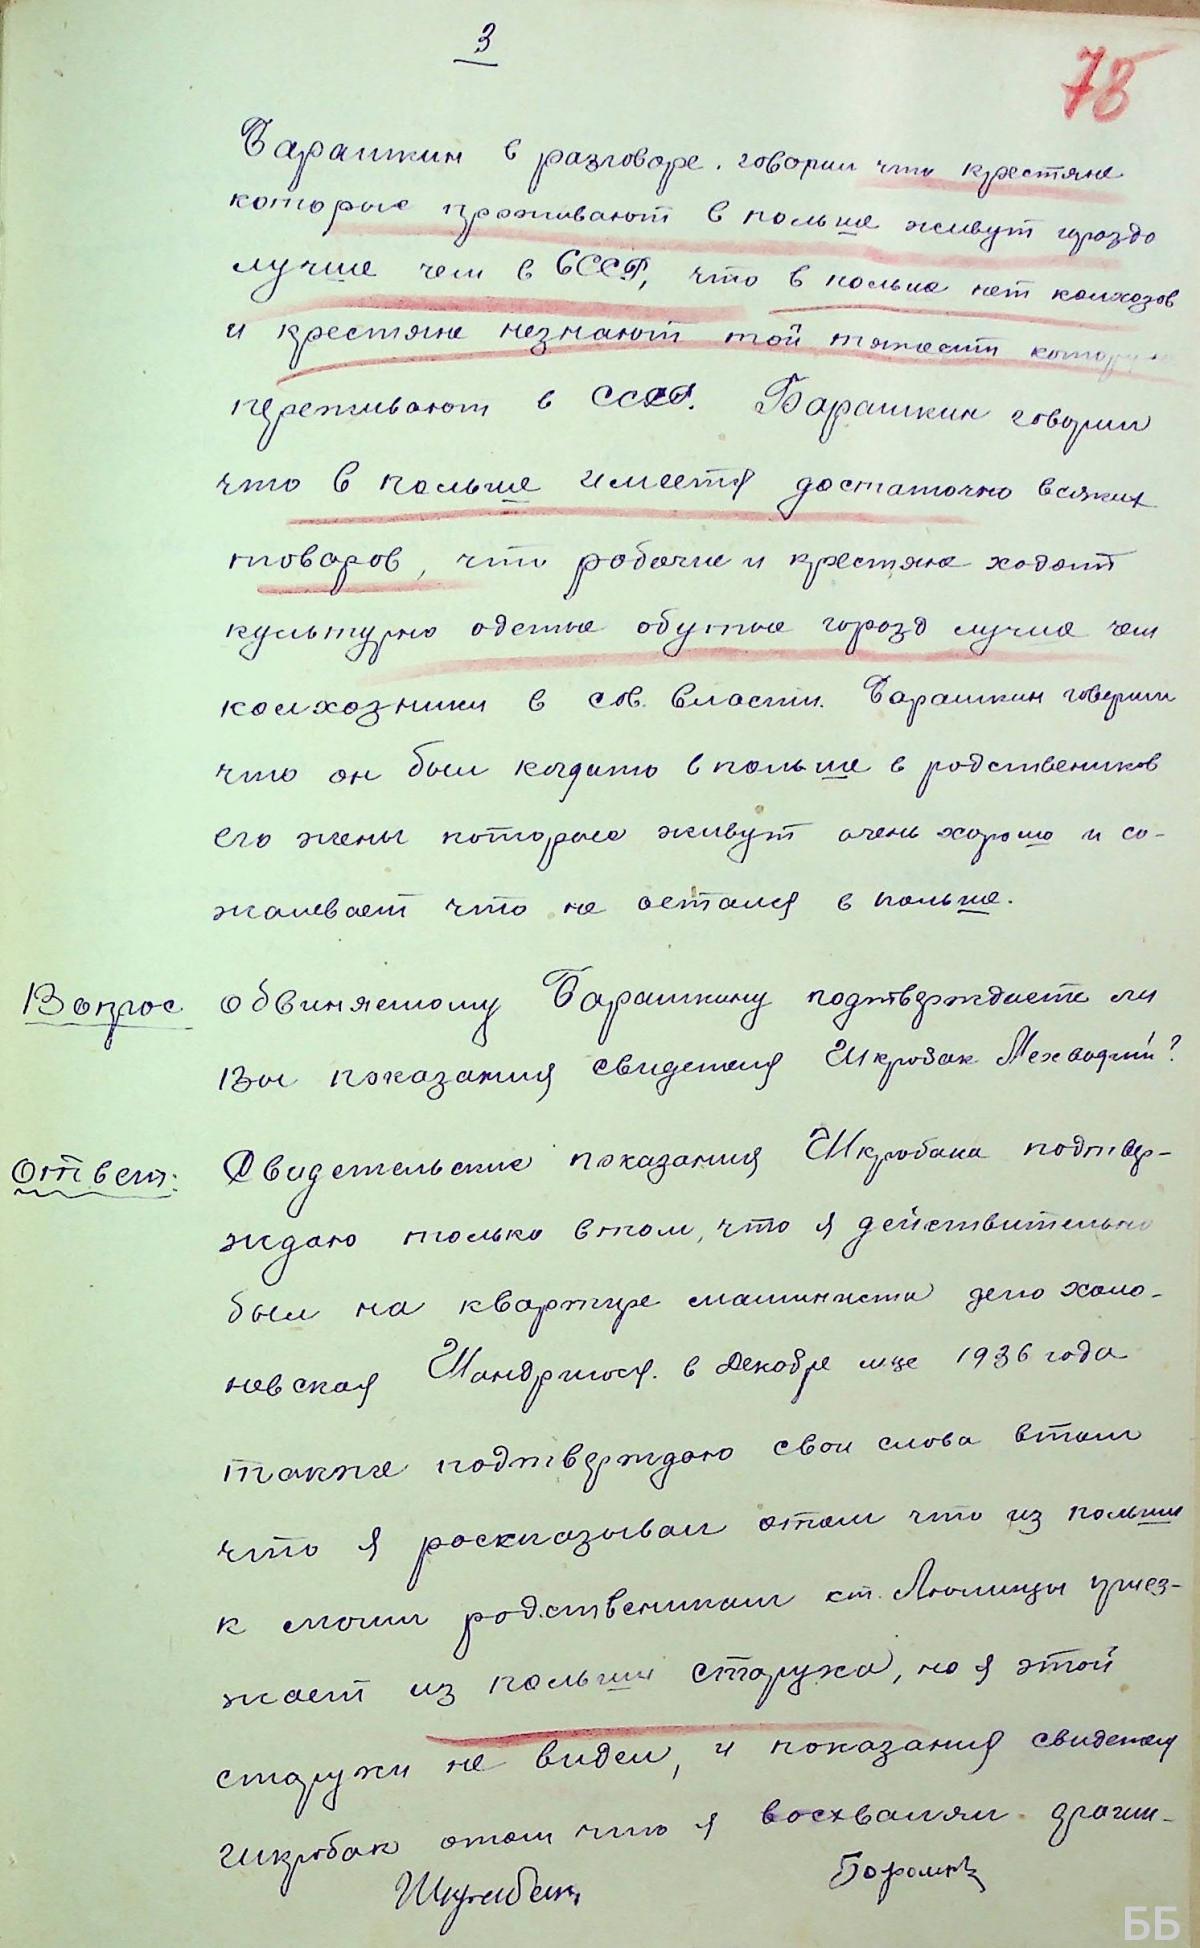 3
78
Барашкин в разговоре. говорил что крестяне
которые проживают в польше живут гораздо
лучше чем в СССР, что в польше нет колхозов
и крестяне незнают той тяжести которую
переживают в СССР. Барашкин говорил
что в польше имеется достаточно всяких
товаров, что рабочие и крестяне ходят
культурно одетые обутые горазд лучше чем
колхозники в сов. власти. Барашкин говорил
что он был когдато в польше в родствеников
его жены которые живут очень хорошо и со-
жалевает что не остался в польше.
Вопрос Обвиняемому Барашкину подтверждаете ли
Вы показания свидетеля Шкробак ?
Ответ: Свидетельские показания Шкробака подтвер-
ждаю только втом, что я действительно
был на квартире машиниста депо холо-
невская в Декабре м-це 1936 года
также подтверждаю свои слова втом
что я росказывал отом что из польши
к моим родствеником ст. приез-
жает из польши старуха, но я этой
старухи не видел, и показания свидетеля
Шкробак отом что я восхвалял
Шкробак
ББ